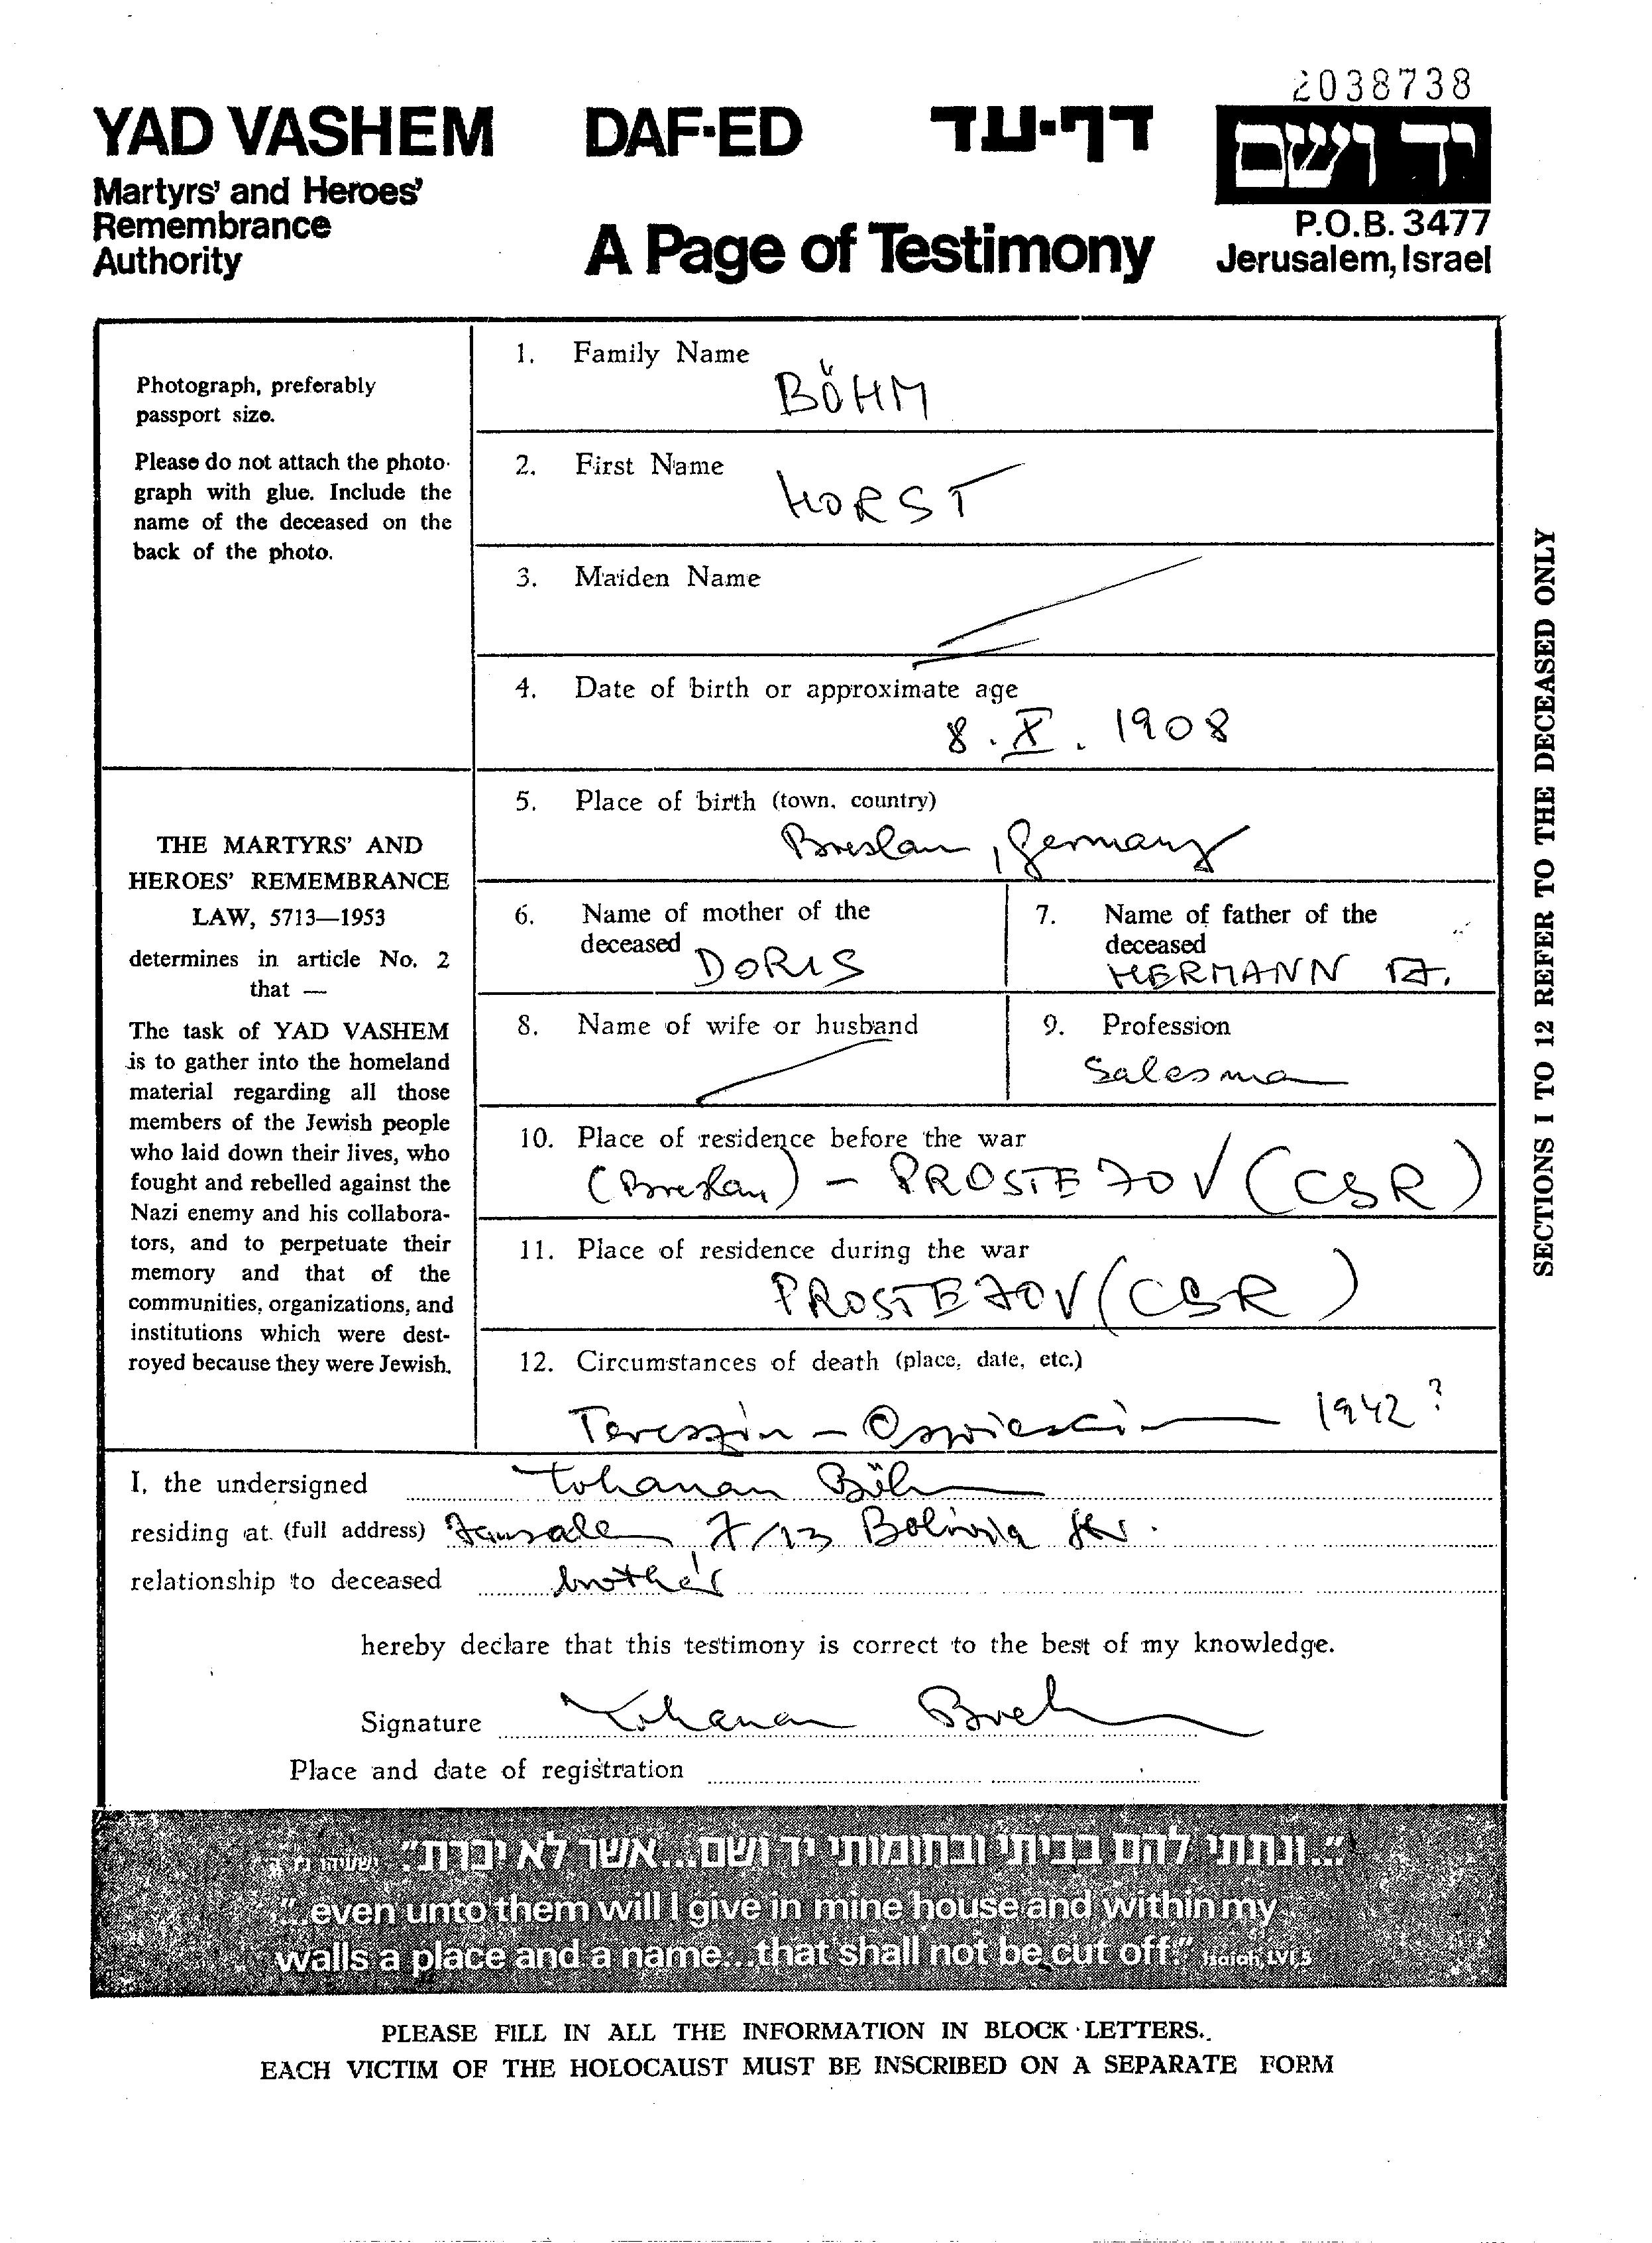 2038738
YAD VASHEM DAF-ED דף-עד יד ושם
Martyrs' and Heroes'
Remembrance
Authority
A Page of Testimony
P.O.B. 3477
Jerusalem, Israel
Photograph, preferably
passport size.
Please do not attach the photo-
graph with glue. Include the
name of the deceased on the
back of the photo.
THE MARTYRS' AND
HEROES' REMEMBRANCE
LAW, 5713—1953
determines in article No. 2
that —
The task of YAD VASHEM
is to gather into the homeland
material regarding all those
members of the Jewish people
who laid down their lives, who
fought and rebelled against the
Nazi enemy and his collabora-
tors, and to perpetuate their
memory and that of the
communities, organizations, and
institutions which were dest-
royed because they were Jewish.
1. Family Name
BÖHM
2. First Name
HORST
3. Maiden Name
4. Date of birth or approximate age
8. X. 1908
5. Place of birth (town, country)
Breslau, Germany
6. Name of mother of the
deceased
DORIS
7. Name of father of the
deceased
HERMANN
8. Name of wife or husband
9. Profession
Salesman
10. Place of residence before the war
(Breslau) - PROSTEJOV (CSR)
11. Place of residence during the war
PROSTEJOV (CSR)
12. Circumstances of death (place, date, etc.)
Tereszin - Oswiescim 1942?
I, the undersigned Yohanan Böhm
residing at (full address) Jerusalem 7/13 Bolivia Str.
relationship to deceased brother
hereby declare that this testimony is correct to the best of my knowledge.
Signature Yohanan Boehm
Place and date of registration
SECTIONS 1 TO 12 REFER TO THE DECEASED ONLY
"...ונתתי להם בביתי ובחומותי יד ושם...אשר לא יכרת."
"...even unto them will I give in mine house and within my
walls a place and a name...that shall not be cut off." Isaiah, LVI,5
PLEASE FILL IN ALL THE INFORMATION IN BLOCK LETTERS.
EACH VICTIM OF THE HOLOCAUST MUST BE INSCRIBED ON A SEPARATE FORM